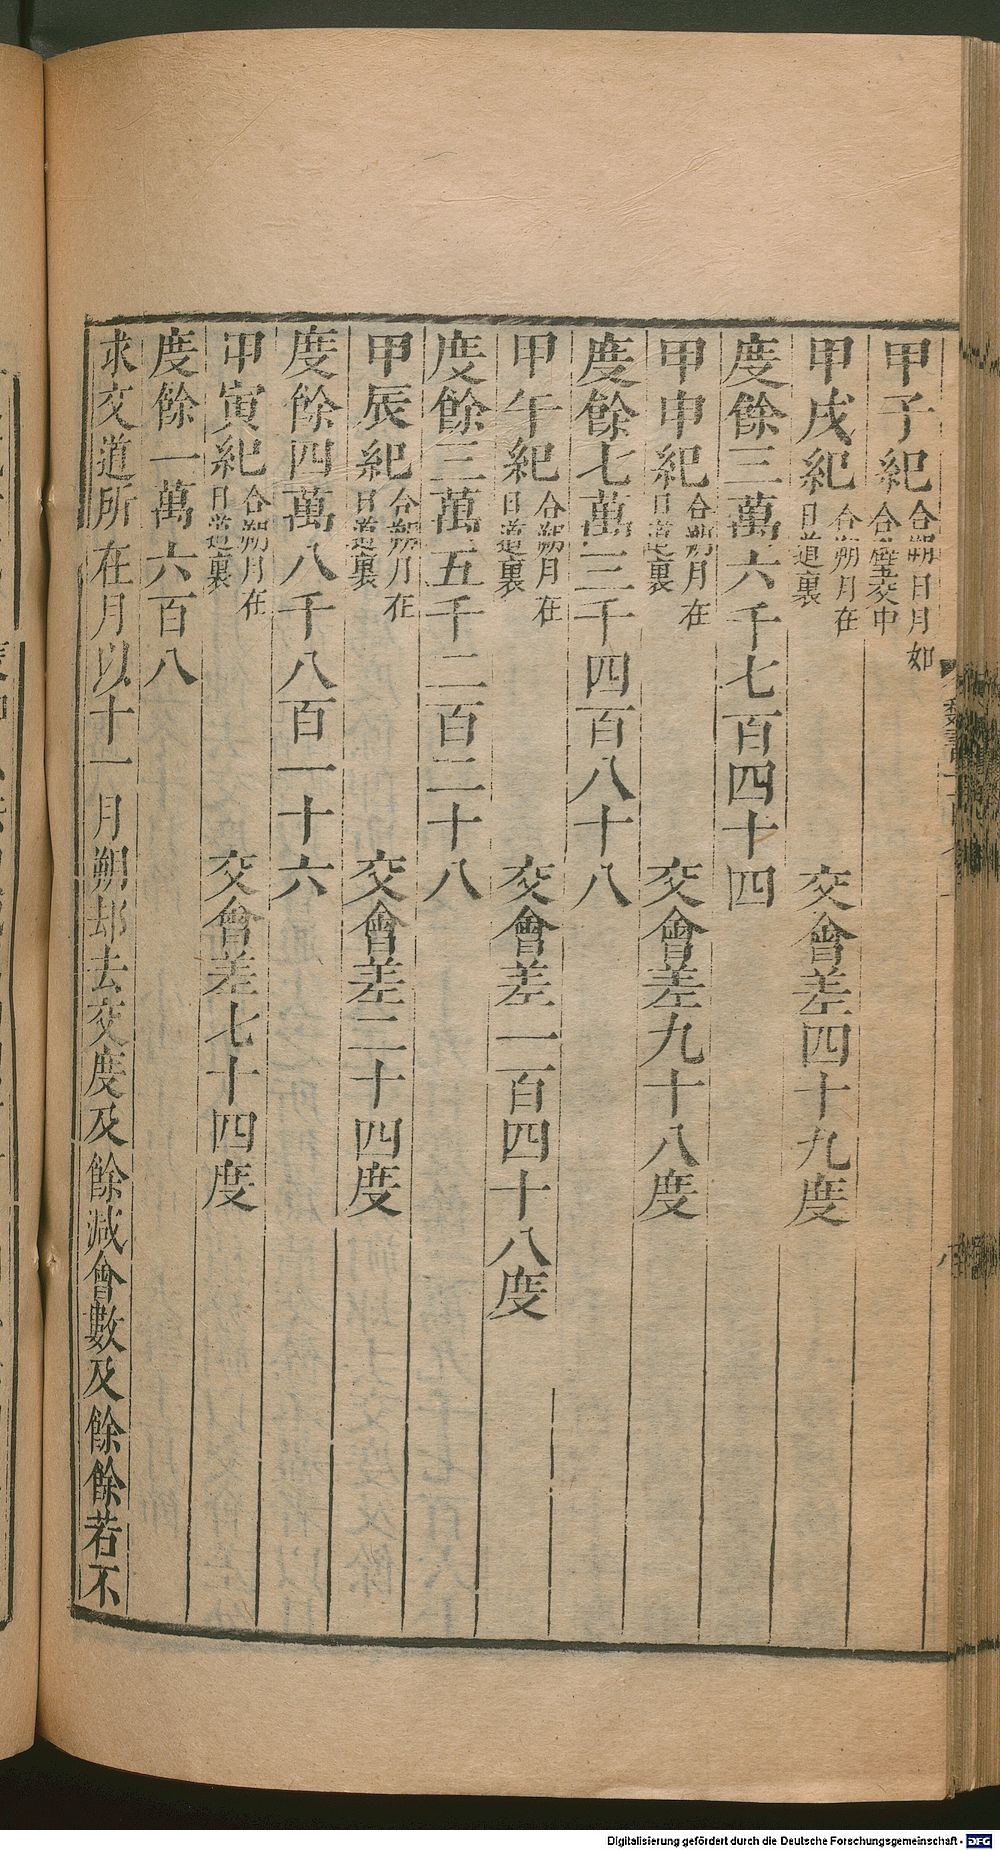 甲子紀合朔日月如合璧交中
甲戌紀合朔月在日道裏 交會差四十九度
度餘三萬六千七百四十四
甲申紀合朔月在日道裏 交會差九十八度
度餘七萬三千四百八十八
甲午紀合朔月在日道裏 交會差一百四十八度
度餘三萬五千二百二十八
甲辰紀合朔月在日道裏 交會差二十四度
度餘四萬八千八百一十六
甲寅紀合朔月在日道裏 交會差七十四度
度餘一萬六百八
求交道所在月以十一月朔却去交度及餘減會數及餘餘若不
Digitalisierung gefördert durch die Deutsche Forschungsgemeinschaft - DFG